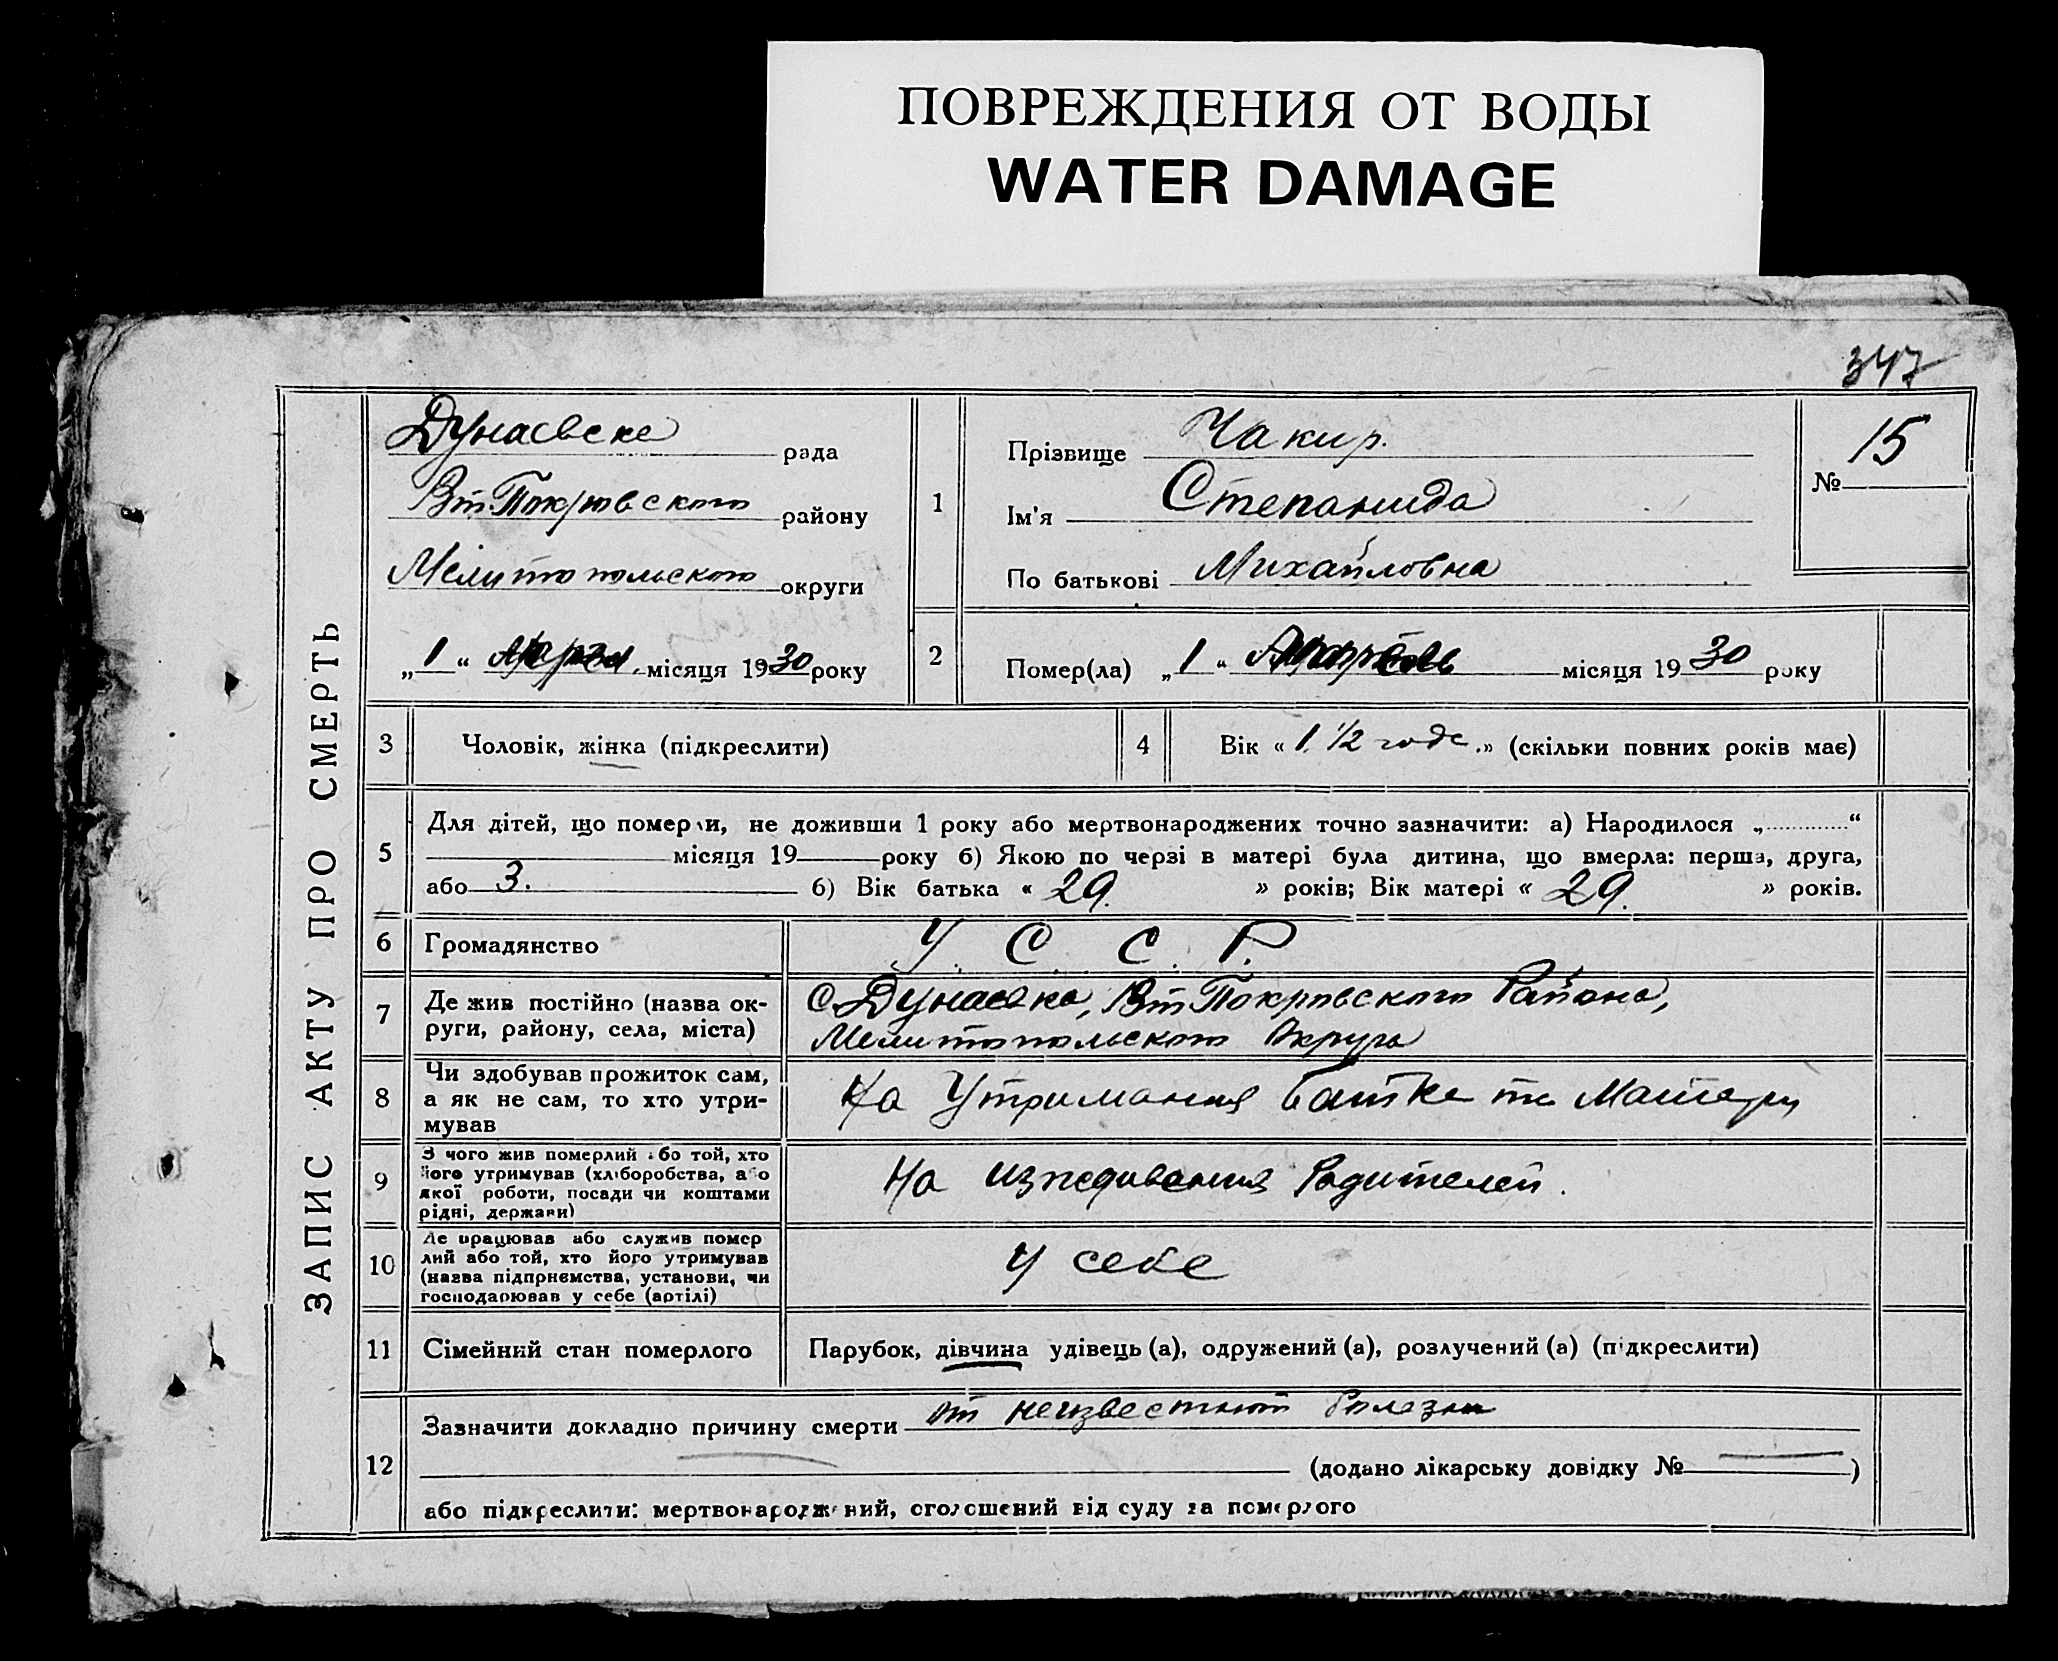 ПОВРЕЖДЕНИЯ ОТ ВОДЫ
WATER DAMAGE
347
ЗАПИС АКТУ ПРО СМЕРТЬ
Дунаевске рада
Вт. Покровского району
Мелитопольского округи
„1“ місяця 1930 року
1
Прізвище Чакир.
Ім'я Степанида
По батькові Михайловна
№ 15
2
Помер(ла) „1“ місяця 1930 року
3
Чоловік, жінка (підкреслити)
4
Вік « 1. 1/2 годa.» (скільки повних років має)
5
Для дітей, що померли, не доживши 1 року або мертвонароджених точно зазначити: а) Народилося „ “
місяця 19 року б) Якою по черзі в матері була дитина, що вмерла: перша, друга,
або 3. б) Вік батька « 29. » років; Вік матері « 29. » років.
6
Громадянство
У. С. С. Р.
7
Де жив постійно (назва ок-
руги, району, села, міста)
С. Дунаевка, Вт Покровского Района,
Мелитопольского Округа
8
Чи здобував прожиток сам,
а як не сам, то хто утри-
мував
На Утримания батка та Матери
9
З чого жив померлий або той, хто
його утримував (хліборобства, або
якої роботи, посади чи коштами
рідні, держави)
На иждивения Родителей.
10
Де працював або служив помер
лий або той, хто його утримував
(назва підприємства, установи, чи
господарював у себе (артілі)
У себе
11
Сімейний стан померлого
Парубок, дівчина удівець (а), одружений (а), розлучений (а) (підкреслити)
12
Зазначити докладно причину смерти от неизвестной болезни
(додано лікарську довідку № )
або підкреслити: мертвонароджений, оголошений від суду за померлого